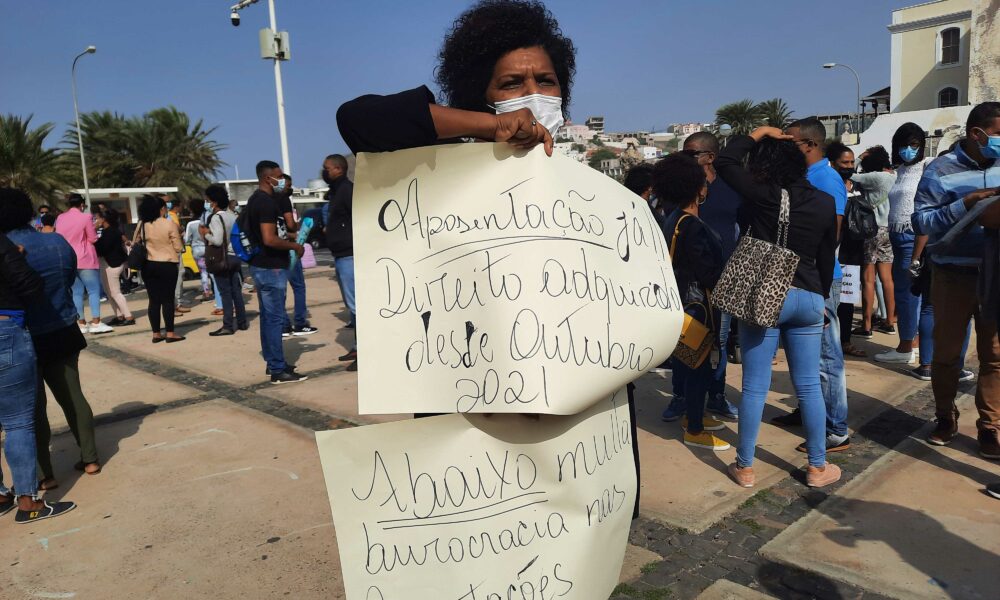 Aposentação já!
Direito adquirido
desde Outubro
2021
Abaixo muita
burocracia nas